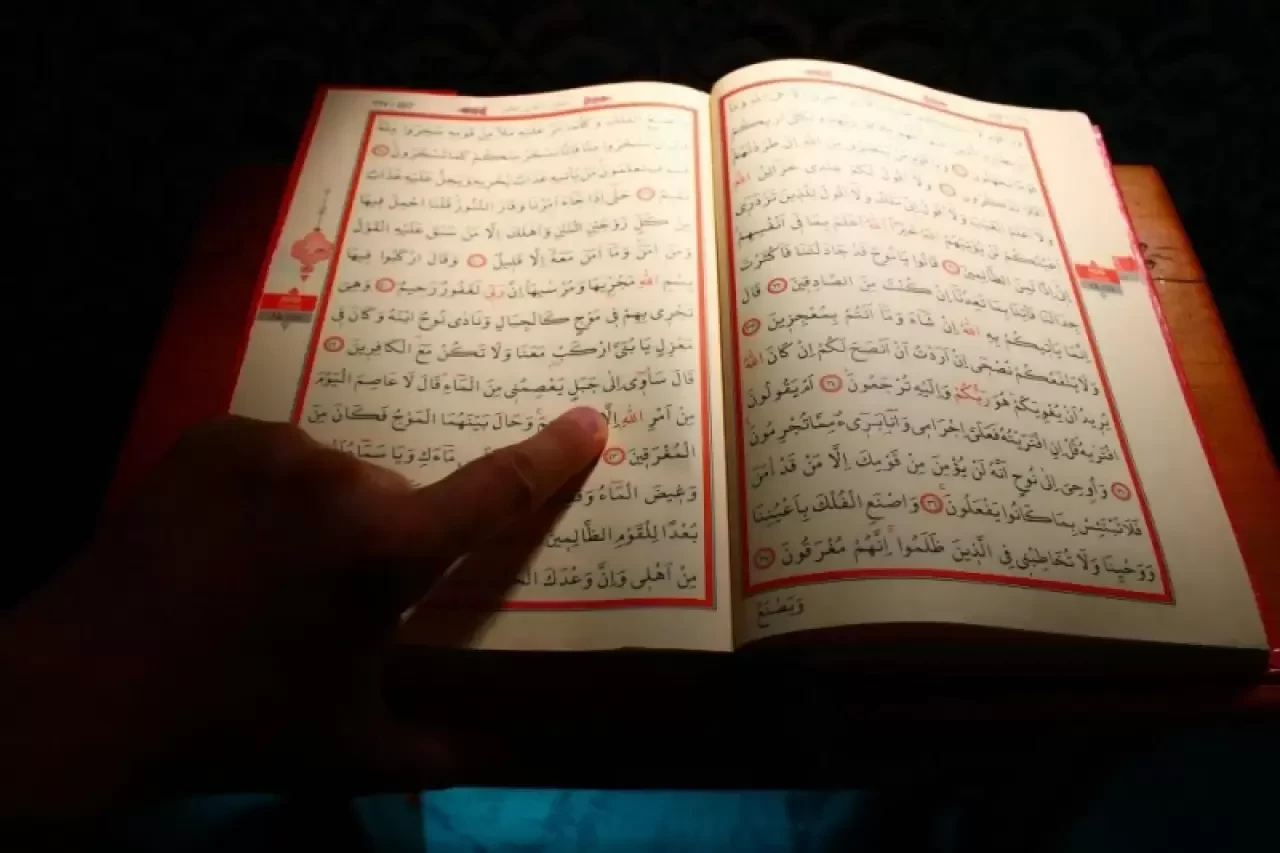 قَوْمًا تَجْهَلُونَ ﴿٢٩﴾ وَيَا قَوْمِ مَنْ يَنْصُرُنِي مِنَ اللّٰهِ اِنْ طَرَدْتُهُمْ
اَفَلَا تَذَكَّرُونَ ﴿٣٠﴾ وَلَا اَقُولُ لَكُمْ عِنْدِي خَزَائِنُ اللّٰهِ
وَلَا اَعْلَمُ الْغَيْبَ وَلَا اَقُولُ اِنِّي مَلَكٌ وَلَا اَقُولُ لِلَّذِينَ تَزْدَرِي
اَعْيُنُكُمْ لَنْ يُؤْتِيَهُمُ اللّٰهُ خَيْرًا اَللّٰهُ اَعْلَمُ بِمَا فِي اَنْفُسِهِمْ
اِنِّي اِذًا لَمِنَ الظَّالِمِينَ ﴿٣١﴾ قَالُوا يَا نُوحُ قَدْ جَادَلْتَنَا فَاَكْثَرْتَ
جِدَالَنَا فَأْتِنَا بِمَا تَعِدُنَا اِنْ كُنْتَ مِنَ الصَّادِقِينَ ﴿٣٢﴾ قَالَ
اِنَّمَا يَأْتِيكُمْ بِهِ اللّٰهُ اِنْ شَاءَ وَمَا اَنْتُمْ بِمُعْجِزِينَ ﴿٣٣﴾
وَلَا يَنْفَعُكُمْ نُصْحِي اِنْ اَرَدْتُ اَنْ اَنْصَحَ لَكُمْ اِنْ كَانَ اللّٰهُ
يُرِيدُ اَنْ يُغْوِيَكُمْ هُوَ رَبُّكُمْ وَاِلَيْهِ تُرْجَعُونَ ﴿٣٤﴾ اَمْ يَقُولُونَ
افْتَرٰيهُ قُلْ اِنِ افْتَرَيْتُهُ فَعَلَيَّ اِجْرَامِي وَاَنَا بَرِيءٌ مِمَّا تُجْرِمُونَ ﴿٣٥﴾
وَاُوحِيَ اِلٰى نُوحٍ اَنَّهُ لَنْ يُؤْمِنَ مِنْ قَوْمِكَ اِلَّا مَنْ قَدْ اٰمَنَ
فَلَا تَبْتَئِسْ بِمَا كَانُوا يَفْعَلُونَ ﴿٣٦﴾ وَاصْنَعِ الْفُلْكَ بِاَعْيُنِنَا
وَوَحْيِنَا وَلَا تُخَاطِبْنِي فِي الَّذِينَ ظَلَمُوا اِنَّهُمْ مُغْرَقُونَ ﴿٣٧﴾
وَيَصْنَعُ
الْفُلْكَ وَكُلَّمَا مَرَّ عَلَيْهِ مَلَاٌ مِنْ قَوْمِهِ سَخِرُوا مِنْهُ
تَسْخَرُوا مِنَّا فَاِنَّا نَسْخَرُ مِنْكُمْ كَمَا تَسْخَرُونَ ﴿٣٨﴾
فَسَوْفَ تَعْلَمُونَ مَنْ يَأْتِيهِ عَذَابٌ يُخْزِيهِ وَيَحِلُّ عَلَيْهِ عَذَابٌ
مُقِيمٌ ﴿٣٩﴾ حَتّٰى اِذَا جَاءَ اَمْرُنَا وَفَارَ التَّنُّورُ قُلْنَا احْمِلْ فِيهَا
مِنْ كُلٍّ زَوْجَيْنِ اثْنَيْنِ وَاَهْلَكَ اِلَّا مَنْ سَبَقَ عَلَيْهِ الْقَوْلُ
وَمَنْ اٰمَنَ وَمَا اٰمَنَ مَعَهُ اِلَّا قَلِيلٌ ﴿٤٠﴾ وَقَالَ ارْكَبُوا فِيهَا
بِسْمِ اللّٰهِ مَجْرٰيهَا وَمُرْسٰيهَا اِنَّ رَبِّي لَغَفُورٌ رَحِيمٌ ﴿٤١﴾ وَهِيَ
تَجْرِي بِهِمْ فِي مَوْجٍ كَالْجِبَالِ وَنَادٰى نُوحٌ ابْنَهُ وَكَانَ فِي
مَعْزِلٍ يَا بُنَيَّ ارْكَبْ مَعَنَا وَلَا تَكُنْ مَعَ الْكَافِرِينَ ﴿٤٢﴾
قَالَ سَاٰوِي اِلٰى جَبَلٍ يَعْصِمُنِي مِنَ الْمَاءِ قَالَ لَا عَاصِمَ الْيَوْمَ
مِنْ اَمْرِ اللّٰهِ اِلَّا وَحَالَ بَيْنَهُمَا الْمَوْجُ فَكَانَ مِنَ
الْمُغْرَقِينَ ﴿٤٣﴾ مَاءَكِ وَيَا سَمَاءُ
وَغِيضَ الْمَاءُ
بُعْدًا لِلْقَوْمِ الظَّالِمِينَ
مِنْ اَهْلِي وَاِنَّ وَعْدَكَ